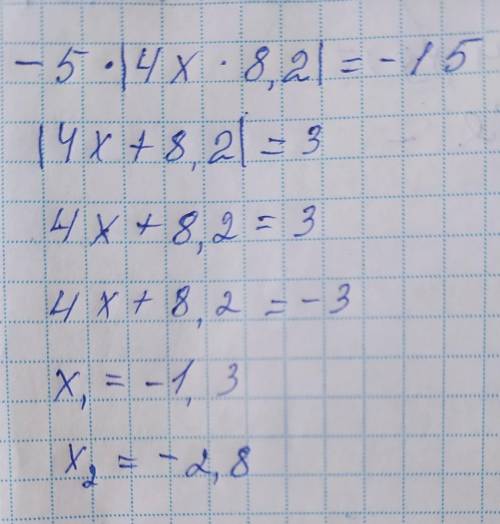 -5 · |4x · 8,2| = -15
|4x + 8,2| = 3
4x + 8,2 = 3
4x + 8,2 = -3
x₁ = -1,3
x₂ = -2,8